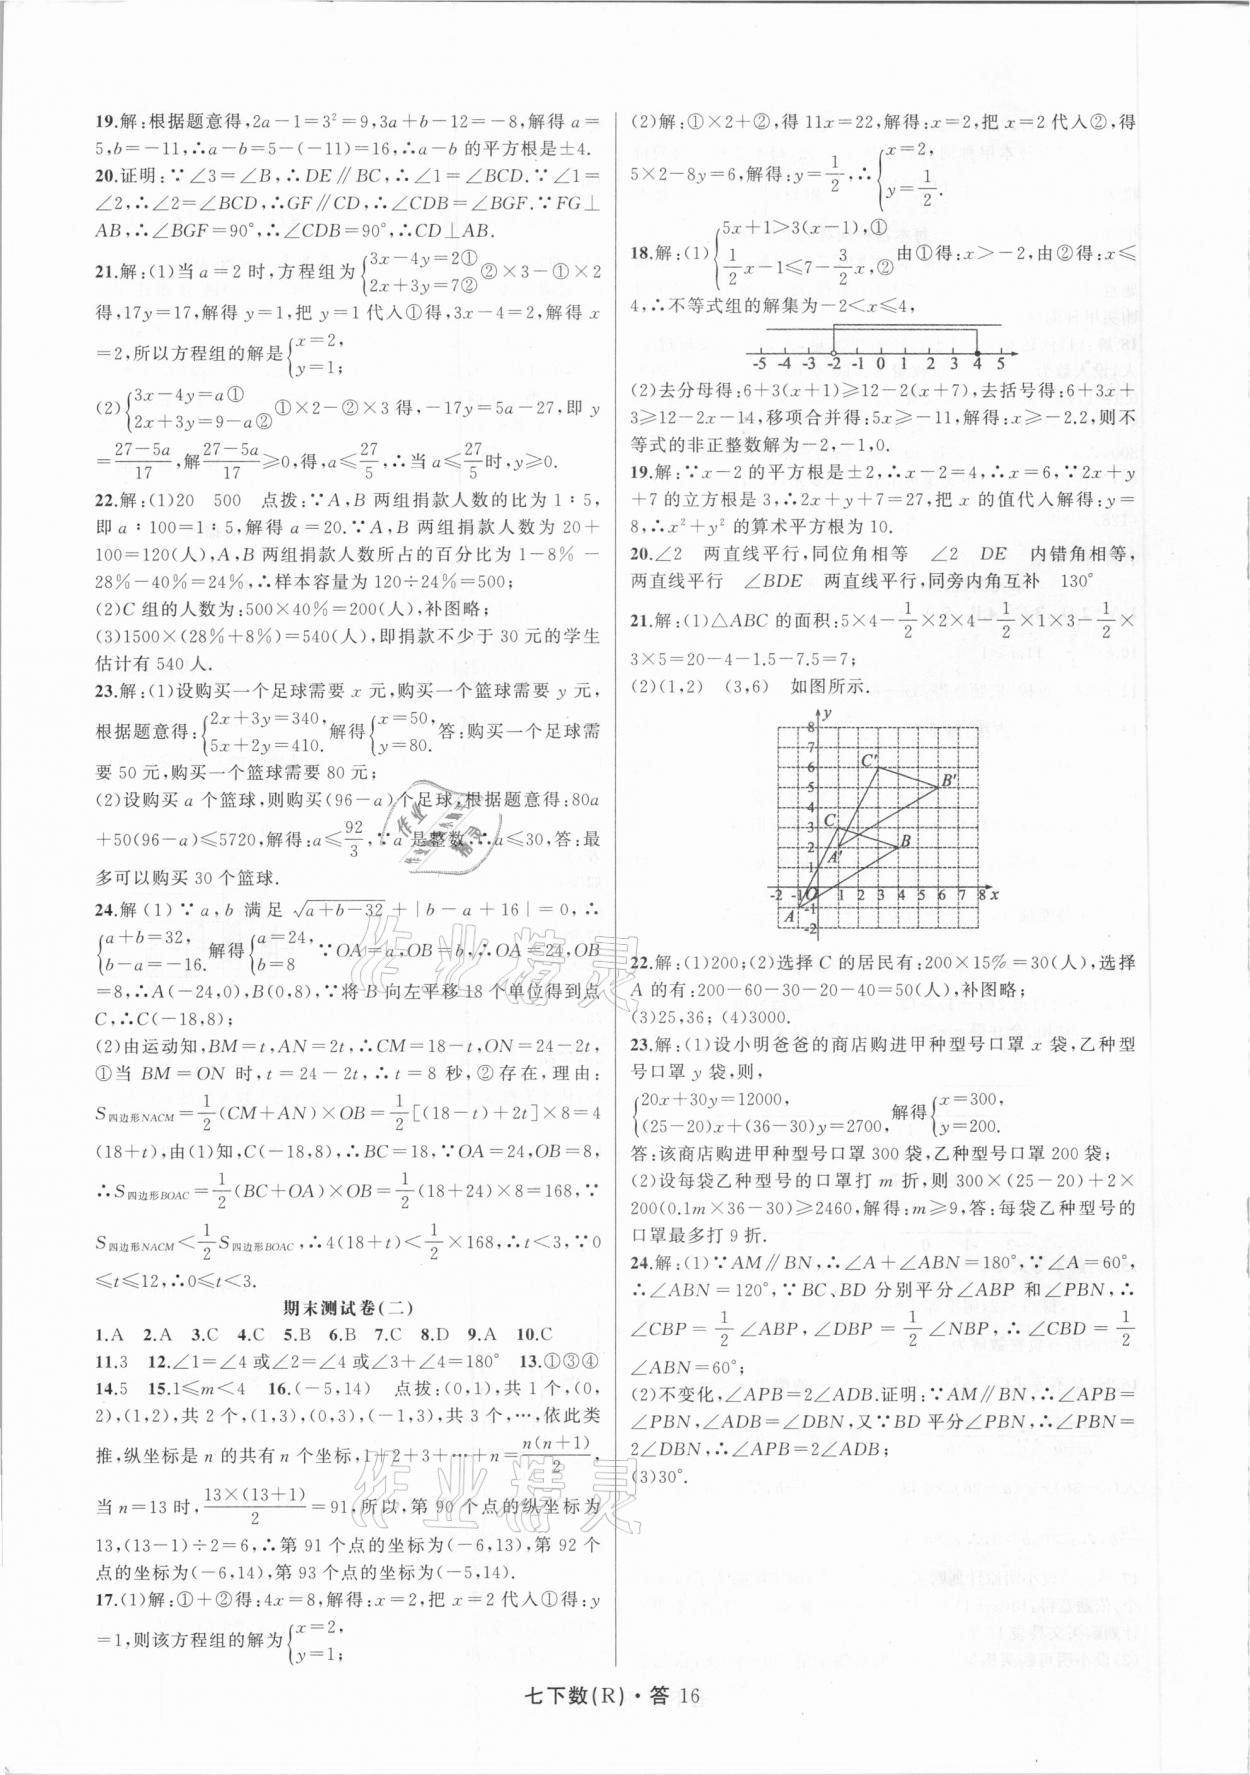 19.解:根据题意得,2a-1=3²=9,3a+b-12=-8,解得 a=
5,b=-11,∴a-b=5-(-11)=16,∴a-b 的平方根是±4.
20.证明:∵∠3=∠B,∴DE∥BC,∴∠1=∠BCD.∵∠1=
∠2,∴∠2=∠BCD,∴GF∥CD,∴∠CDB=∠BGF.∵FG⊥
AB,∴∠BGF=90°,∴∠CDB=90°,∴CD⊥AB.
21.解:(1)当 a=2 时,方程组为{3x-4y=2① 2x+3y=7②②×3-①×2
得,17y=17,解得 y=1,把 y=1 代入①得,3x-4=2,解得 x
=2,所以方程组的解是{x=2, y=1;
(2){3x-4y=a① 2x+3y=9-a②①×2-②×3 得,-17y=5a-27,即 y
=27-5a/17,解27-5a/17≥0,得,a≤27/5,∴当 a≤27/5时,y≥0.
22.解:(1)20 500 点拨:∵A,B 两组捐款人数的比为 1∶5,
即 a∶100=1∶5,解得 a=20.∵A,B 两组捐款人数为 20+
100=120(人),A,B 两组捐款人数所占的百分比为 1-8%-
28%-40%=24%,∴样本容量为 120÷24%=500;
(2)C 组的人数为:500×40%=200(人),补图略;
(3)1500×(28%+8%)=540(人),即捐款不少于 30 元的学生
估计有 540 人.
23.解:(1)设购买一个足球需要 x 元,购买一个篮球需要 y 元,
根据题意得:{2x+3y=340, 5x+2y=410.解得{x=50, y=80.答:购买一个足球需
要 50 元,购买一个篮球需要 80 元;
(2)设购买 a 个篮球,则购买(96-a)个足球,根据题意得:80a
+50(96-a)≤5720,解得:a≤92/3,∵a 是整数,∴a≤30,答:最
多可以购买 30 个篮球.
24.解(1)∵a,b 满足 √(a+b-32)+|b-a+16|=0,∴
{a+b=32, b-a=-16. 解得{a=24, b=8 ∵OA=a,OB=b,∴OA=24,OB
=8,∴A(-24,0),B(0,8),∵将 B 向左平移 18 个单位得到点
C,∴C(-18,8);
(2)由运动知,BM=t,AN=2t,∴CM=18-t,ON=24-2t,
①当 BM=ON 时,t=24-2t,∴t=8 秒,②存在,理由:
S四边形NACM=1/2(CM+AN)×OB=1/2[(18-t)+2t]×8=4
(18+t),由(1)知,C(-18,8),∴BC=18,∵OA=24,OB=8,
∴S四边形BOAC=1/2(BC+OA)×OB=1/2(18+24)×8=168,∵
S四边形NACM<1/2S四边形BOAC,∴4(18+t)<1/2×168,∴t<3,∵0
≤t≤12,∴0≤t<3.
期末测试卷(二)
1.A 2.A 3.C 4.C 5.B 6.B 7.C 8.D 9.A 10.C
11.3 12.∠1=∠4 或∠2=∠4 或∠3+∠4=180° 13.①③④
14.5 15.1≤m<4 16.(-5,14) 点拨:(0,1),共 1 个,(0,
2),(1,2),共 2 个,(1,3),(0,3),(-1,3),共 3 个,…,依此类
推,纵坐标是 n 的共有 n 个坐标,1+2+3+…+n=n(n+1)/2,
当 n=13 时,13×(13+1)/2=91,所以,第 90 个点的纵坐标为
13,(13-1)÷2=6,∴第 91 个点的坐标为(-6,13),第 92 个
点的坐标为(-6,14),第 93 个点的坐标为(-5,14).
17.(1)解:①+②得:4x=8,解得:x=2,把 x=2 代入①得:y
=1,则该方程组的解为{x=2, y=1;
(2)解:①×2+②,得 11x=22,解得:x=2,把 x=2 代入②,得
5×2-8y=6,解得:y=1/2,∴{x=2, y=1/2.
18.解:(1){5x+1>3(x-1),① 1/2x-1≤7-3/2x,② 由①得:x>-2,由②得:x≤
4,∴不等式组的解集为-2<x≤4,
-5 -4 -3 -2 -1 0 1 2 3 4 5
(2)去分母得:6+3(x+1)≥12-2(x+7),去括号得:6+3x+
3≥12-2x-14,移项合并得:5x≥-11,解得:x≥-2.2,则不
等式的非正整数解为-2,-1,0.
19.解:∵x-2 的平方根是±2,∴x-2=4,∴x=6,∵2x+y
+7 的立方根是 3,∴2x+y+7=27,把 x 的值代入解得:y=
8,∴x²+y² 的算术平方根为 10.
20.∠2 两直线平行,同位角相等 ∠2 DE 内错角相等,
两直线平行 ∠BDE 两直线平行,同旁内角互补 130°
21.解:(1)△ABC 的面积:5×4-1/2×2×4-1/2×1×3-1/2×
3×5=20-4-1.5-7.5=7;
(2)(1,2) (3,6) 如图所示.
y
8
7
6 C'
5 B'
4
3 C
2 A' B
1
-2 -1 O 1 2 3 4 5 6 7 8 x
A -1
-2
22.解:(1)200;(2)选择 C 的居民有:200×15%=30(人),选择
A 的有:200-60-30-20-40=50(人),补图略;
(3)25,36; (4)3000.
23.解:(1)设小明爸爸的商店购进甲种型号口罩 x 袋,乙种型
号口罩 y 袋,则,
{20x+30y=12000, (25-20)x+(36-30)y=2700,解得{x=300, y=200.
答:该商店购进甲种型号口罩 300 袋,乙种型号口罩 200 袋;
(2)设每袋乙种型号的口罩打 m 折,则 300×(25-20)+2×
200(0.1m×36-30)≥2460,解得:m≥9,答:每袋乙种型号的
口罩最多打 9 折.
24.解:(1)∵AM∥BN,∴∠A+∠ABN=180°,∵∠A=60°,
∴∠ABN=120°,∵BC、BD 分别平分∠ABP 和∠PBN,∴
∠CBP=1/2∠ABP,∠DBP=1/2∠NBP,∴∠CBD=1/2
∠ABN=60°;
(2)不变化,∠APB=2∠ADB.证明:∵AM∥BN,∴∠APB=
∠PBN,∠ADB=∠DBN,又∵BD 平分∠PBN,∴∠PBN=
2∠DBN,∴∠APB=2∠ADB;
(3)30°.
七下数(R)·答 16
作业精灵
作业精灵